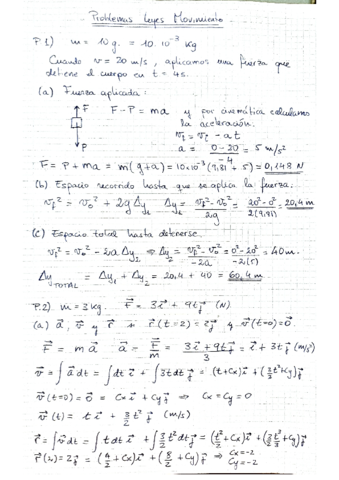 Problemas Leyes Movimiento.
P.1) m = 10 g. = 10·10⁻³ Kg
Cuando v = 20 m/s, aplicamos una fuerza que
detiene el cuerpo en t = 4s.
(a) Fuerza aplicada:
F
F - P = ma y por cinemática calculamos
la aceleración:
v_f = v_0 - at
P
a = 0-20 / -4 = 5 m/s²
F = P + ma = m(g+a) = 10·10⁻³(9,81 + 5) = 0,148 N
(b) Espacio recorrido hasta que se aplica la fuerza:
v_f² = v_0² + 2gΔy₁ Δy₁ = v_f² - v_0² / 2g = 20² - 0² / 2(9,81) = 20,4 m
(c) Espacio total hasta detenerse.
v_f² = v_0² - 2aΔy₂ ⇒ Δy₂ = v_f² - v_0² / -2a = 0² - 20² / -2(5) = 40 m.
Δy_TOTAL = Δy₁ + Δy₂ = 20,4 + 40 = 60,4 m
P.2) m = 3 kg. F⃗ = 3i⃗ + 9t j⃗ (N)
(a) a⃗, v⃗ y r⃗ si r⃗(t=2) = 2j⃗ y v⃗(t=0) = 0⃗
F⃗ = m a⃗ a⃗ = F⃗/m = 3i⃗ + 9t j⃗ / 3 = i⃗ + 3t j⃗ (m/s²)
v⃗ = ∫ a⃗ dt = ∫ dt i⃗ + ∫ 3t dt j⃗ = (t + Cx) i⃗ + (3/2 t² + Cy) j⃗
v⃗(t=0) = 0⃗ = Cx i⃗ + Cy j⃗ ⇒ Cx = Cy = 0
v⃗(t) = t i⃗ + 3/2 t² j⃗ (m/s)
r⃗ = ∫ v⃗ dt = ∫ t dt i⃗ + ∫ 3/2 t² dt j⃗ = (t²/2 + Cx) i⃗ + (3/2 t³/3 + Cy) j⃗
r⃗(2) = 2j⃗ = (4/2 + Cx) i⃗ + (8/2 + Cy) j⃗ ⇒ Cx = -2
Cy = -2